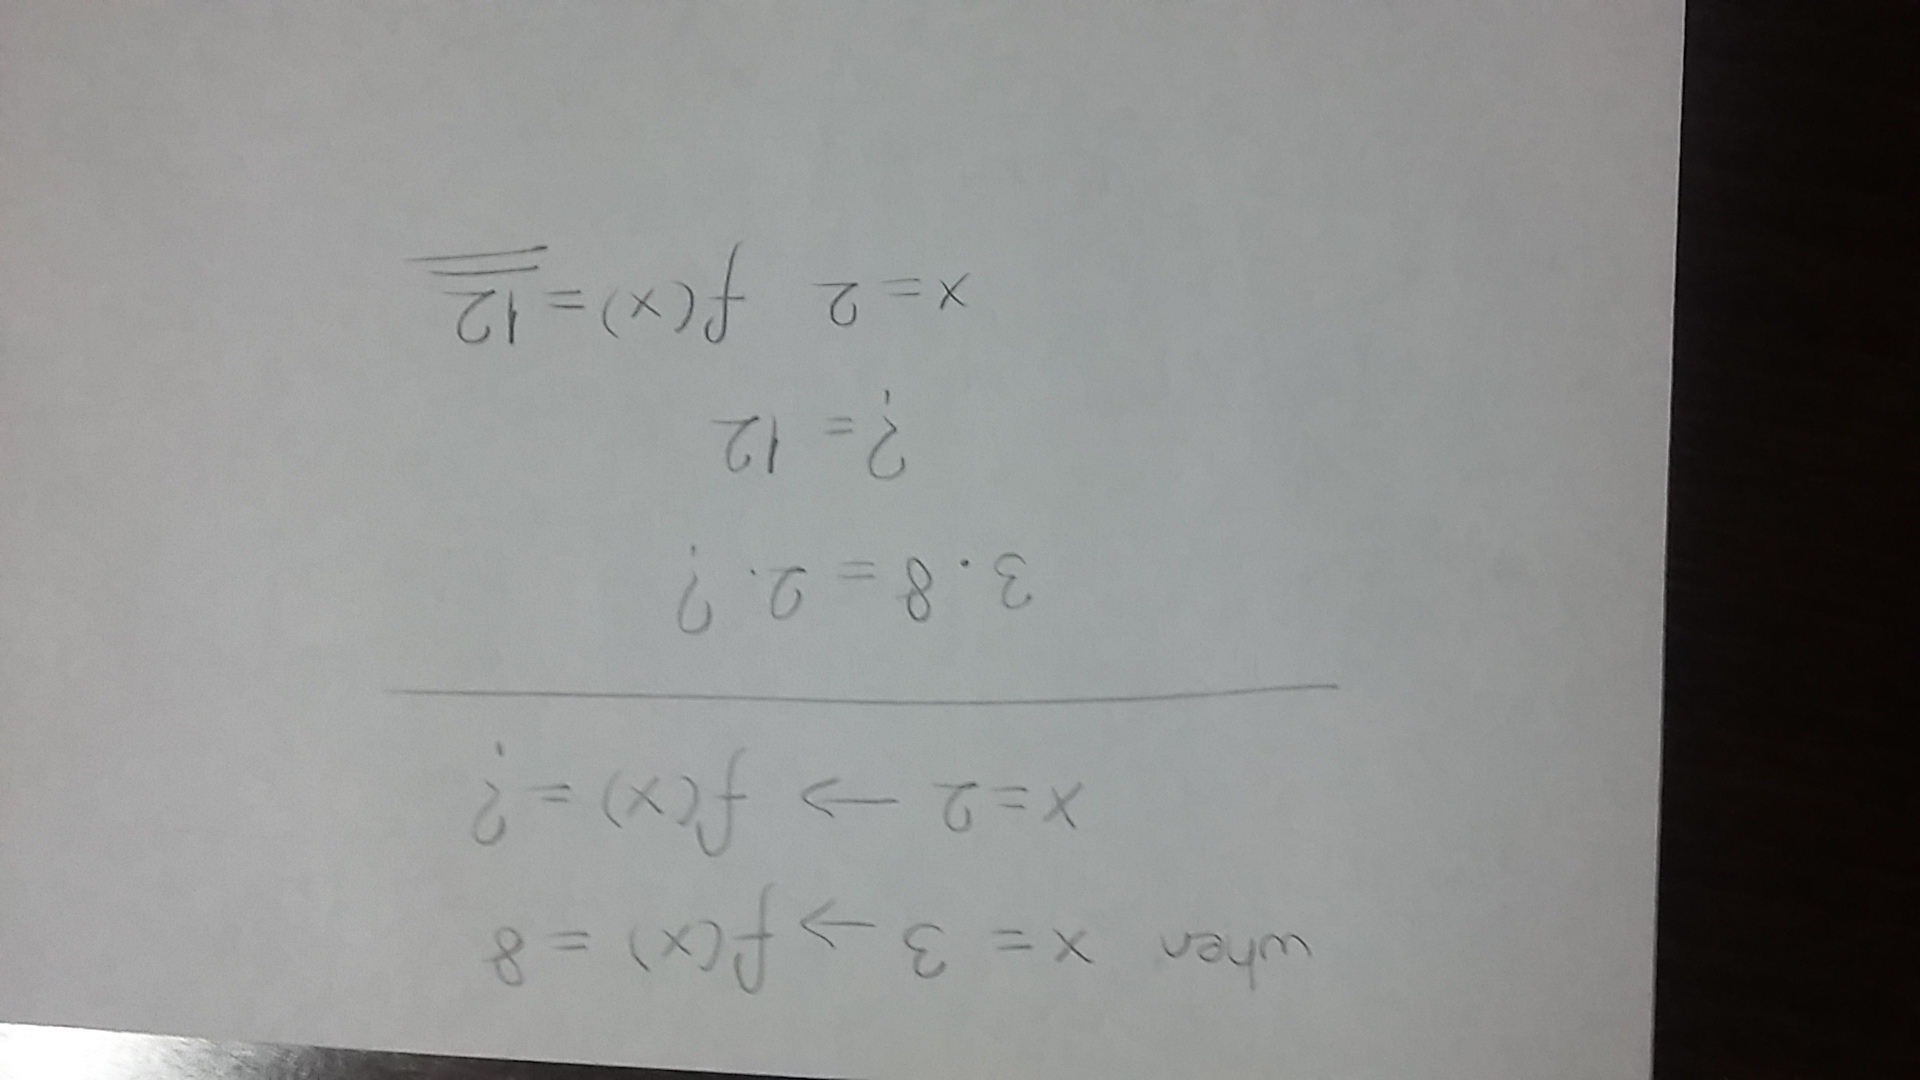 when x = 3 → f(x) = 8
x = 2 → f(x) = ?
3 · 8 = 2 · ?
? = 12
x = 2 f(x) = 12